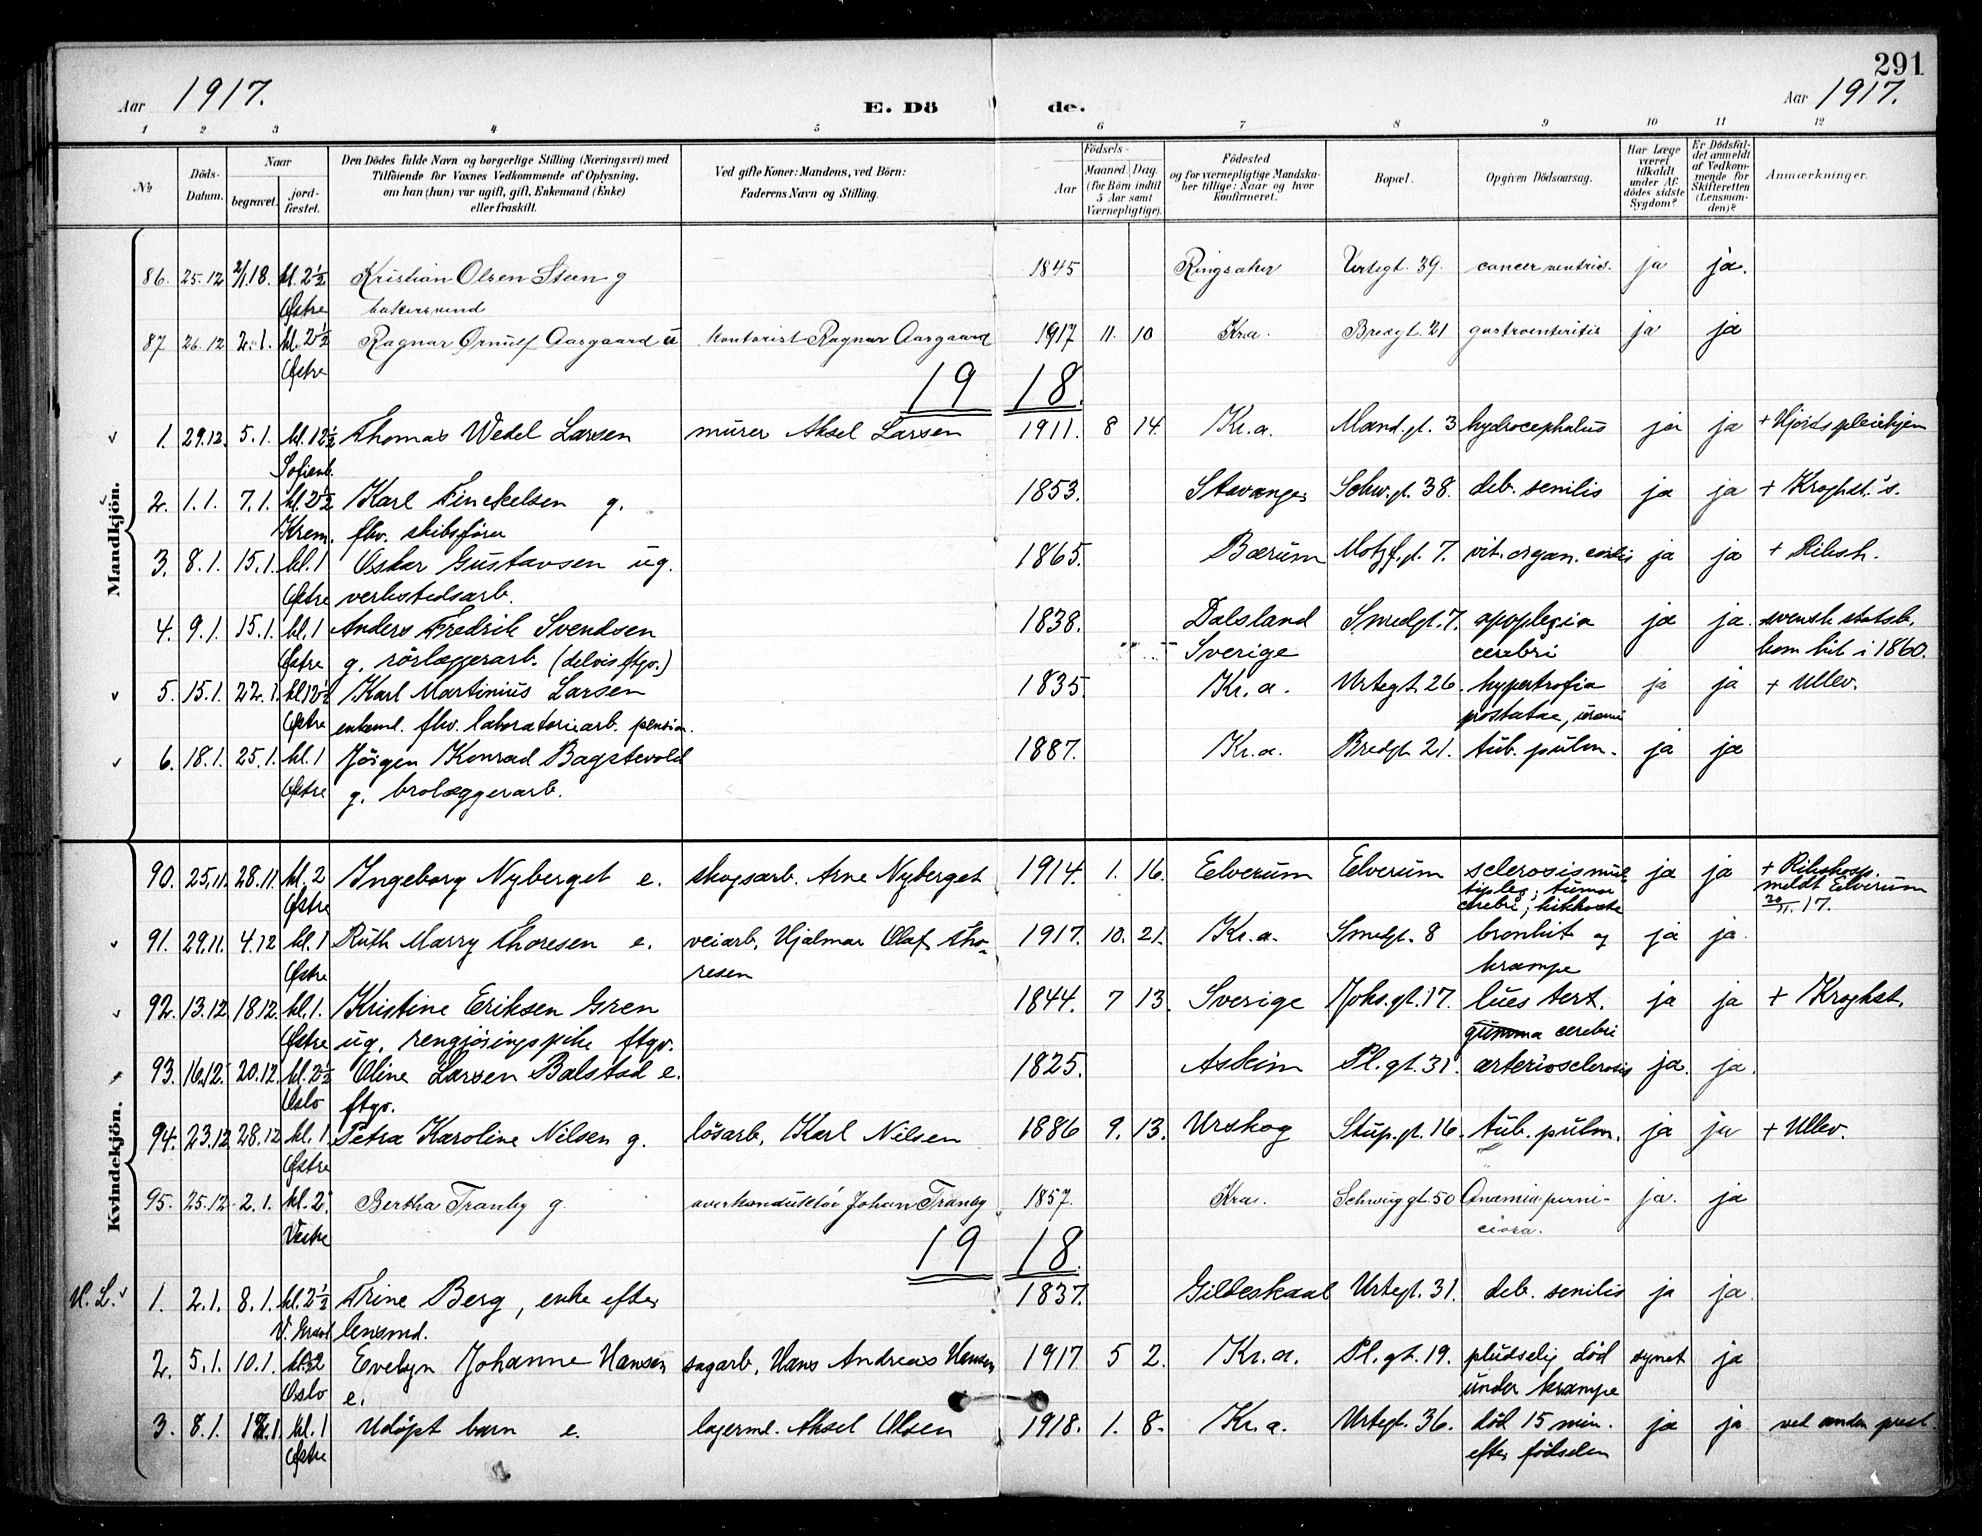 291
Aar 1917. E. Dö de. Aar 1917.
1 2 3 4 5 6 7 8 9 10 11 12
№ Döds-Datum. Naar begravet. jord-fæstet. Den Dödes fulde Navn og borgerlige Stilling (Næringsvei) med Tilföiende for Voxnes Vedkommende af Oplysning, om han (hun) var ugift, gift, Enkemand (Enke) eller fraskilt. Ved gifte Koner: Mandens, ved Börn: Faderens Navn og Stilling. Födsels- Aar Maaned. Dag. (for Börn indtil 5 Aar samt Værnepligtige). Födested og for værnepligtige Mandskaber tillige: Naar og hvor konfirmeret. Bopæl. Opgiven Dödsaarsag. Har Læge været tilkaldt under Afdödes sidste Sygdom? Er Dödsfaldet anmeldt af Vedkommende for Skifteretten (Lensmanden)? Anmærkninger.
Mandkjön.
86. 25.12 2/1.18. kl. 2½ Kristian Olsen Steen g 1845 Ringsaker Urtegt. 39. cancer ventric. ja ja.
Østre bakersvend
87 26.12 2.1. kl. 2½ Ragnar Ørnulf Aasgaard u kontorist Ragnar Aasgaard 1917 11. 10 Kra. Bredgt. 21 gastroenteritis ja ja
Østre
19 18.
1. 29.12. 5.1. kl. 12½ Thomas Wedel Larsen murer Aksel Larsen 1911. 8 14. Kr.a. Mand.gt. 3 hydrocephalus ja ja + Hjords pleiehjem
Sofienb.
2. 1.1. 7.1. kl. 2½ Karl Finckelsen g. 1853. Stavanger Schw.gt. 38. deb. senilis ja ja + Kroghst.'s.
Krem. fhv. skibsfører
3. 8.1. 15.1. kl. 1 Oskar Gustavsen ug. 1865. Bærum Motzf.gt. 7. vit. organ. cordis ja ja + Riksh.
Østre verkstedsarb.
4. 9.1. 15.1. kl. 1 Anders Fredrik Svendsen 1838. Dalsland Smedgt. 7. apoplexia ja ja. svensk statsb.
Østre g. rörlæggerarb. (delvis ftgv.) Sverige cerebri kom hit i 1860.
5. 15.1. 22.1. kl. 12½ Karl Martinius Larsen 1835. Kr.a. Urtegt. 26. hypertrofia ja ja + Ullev.
Østre enkeml. fhv. laboratoriearb. pension. prostatae, uremi
6. 18.1. 25.1. kl. 1 Jörgen Konrad Bagstevold 1887. Kr.a. Bredgt. 21. tub. pulm. ja ja
Østre g. brolæggerarb.
Kvindekjön.
90. 25.11. 28.11. kl. 2 Ingeborg Nyberget e. skogsarb. Arne Nyberget 1914. 1. 16. Elverum Elverum sclerosis mul- ja ja + Rikshosp.
Østre tiplex; tumor meldt Elverum
cerebri; kikhoste 30/11.17.
91. 29.11. 4.12 kl. 1 Ruth Marry Thoresen e. veiarb. Hjalmar Olaf Tho- 1917. 10. 21. Kr.a. Smedgt. 8 bronkit og ja ja.
Østre resen krampe
92. 13.12. 18.12. kl. 1. Kristine Eriksen Gren 1844. 7 13. Sverige Johs.gt. 17. lues tert. ja ja + Kroghst.
Østre ug. rengjøringspike ftgv. gumma cerebri
93. 16.12. 20.12. kl. 2½ Oline Larsen Balstad e. 1825. Askim Pl.gt. 31. arteriosclerosis ja. ja.
Oslo ftgv.
94. 23.12 28.12 kl. 1 Petra Karoline Nilsen g. lösarb. Karl Nilsen 1886 9. 13. Urskog Stup.gt. 16. tub. pulm. ja ja + Ullev.
Østre
95. 25.12. 2.1. kl. 2. Bertha Tranby g. overkonduktör Johan Tranby 1857. Kra. Schweiggt. 50 Anæmia perni- ja. ja
Vestre ciosa.
19 18.
U. L. 1. 2.1. 8.1. kl. 2½ Trine Berg, enke efter 1837. Gildeskaal Urtegt. 31. deb. senilis ja ja.
lensmd.
2. 5.1. 10.1. kl. 2 Evelyn Johanne Hansen sagarb. Hans Andreas Hansen 1917 5 2. Kr.a. Pl.gt. 19. pludselig død synet ja
Oslo e. under krampe
3. 8.1. kl. 1 Udöpt barn e. lagerml. Aksel Olsen 1918. 1. 8. Kr.a. Urtegt. 36. død 15 min. ja ja ved anden prest.
Østre efter fødselen